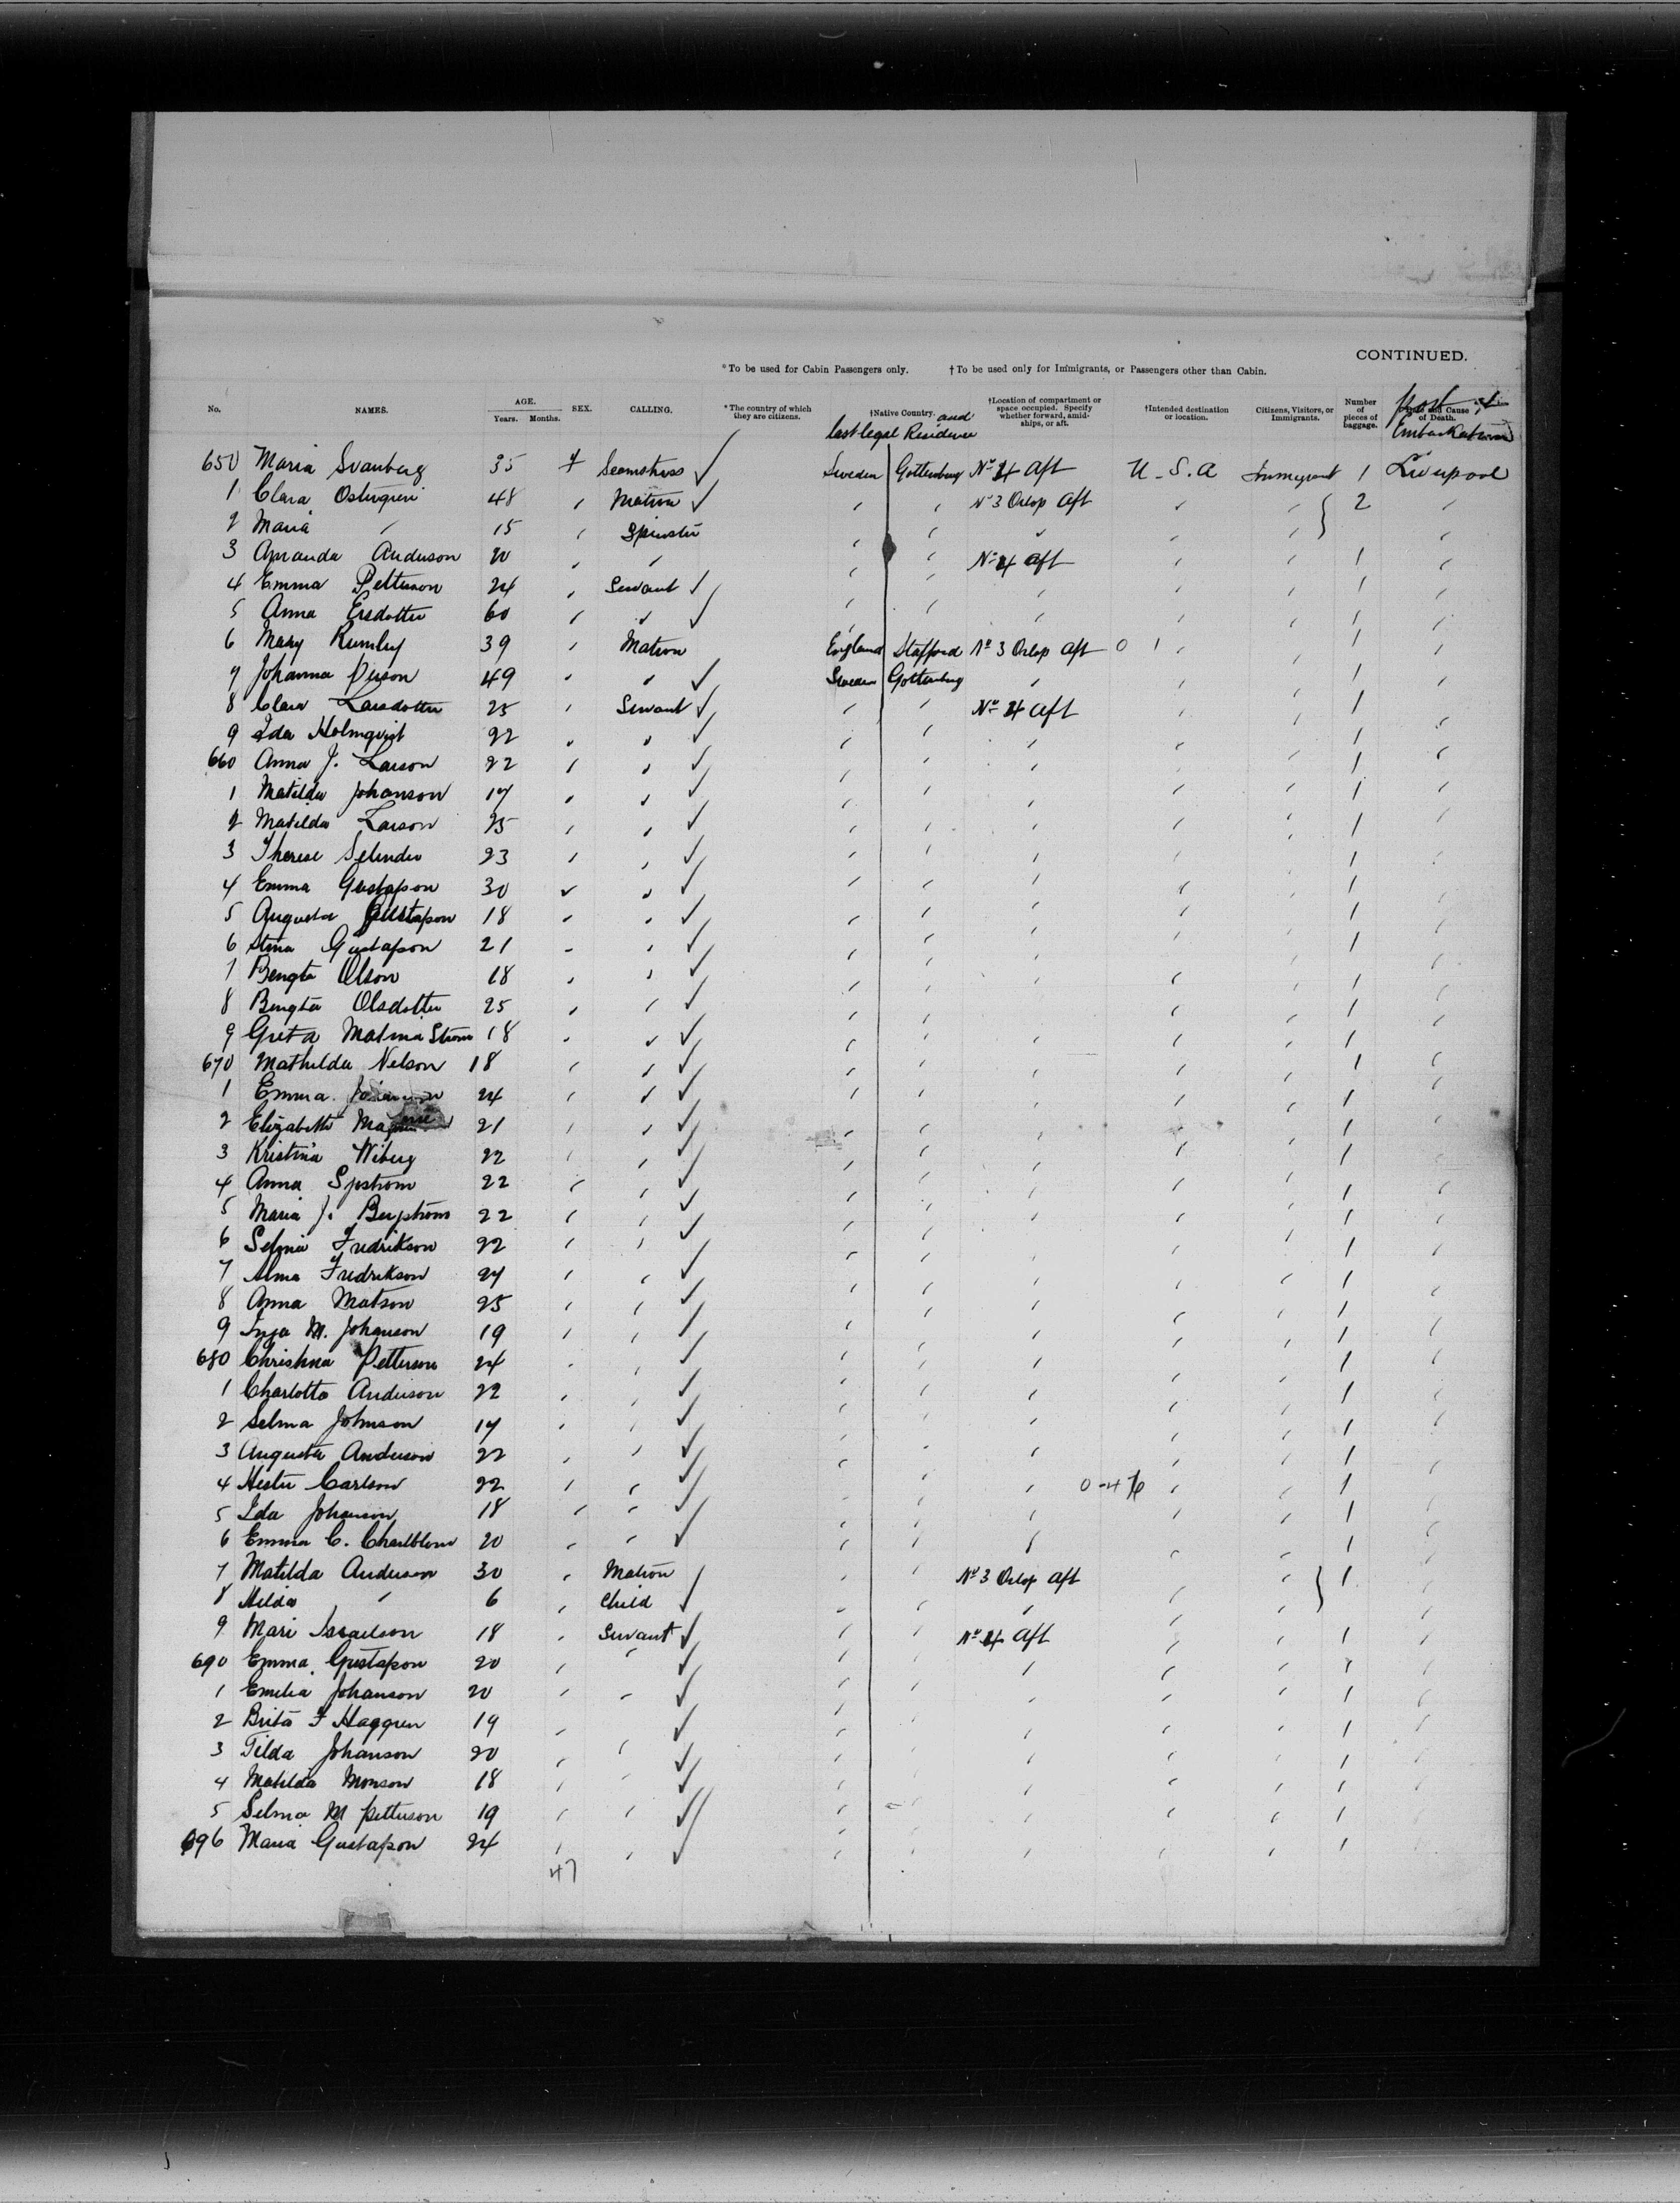 CONTINUED.
*To be used for Cabin Passengers only. †To be used only for Immigrants, or Passengers other than Cabin.
No. NAMES. AGE. Years. Months. SEX. CALLING. *The country of which they are citizens. †Native Country. and last legal Residence †Location of compartment or space occupied. Specify whether forward, amidships, or aft. †Intended destination or location. Citizens, Visitors, or Immigrants. Number of pieces of baggage. Date and Cause of Death. port of Embarkation
650 Maria Svanberg 35 f Seamstress Sweden Gottenburg No 4 aft U.S.A Immigrant 1 Liverpool
1 Clara Ostergren 48 " Matron " " No 3 Orlop aft " " 2 "
2 Maria " 15 " Spinster " " " " " "
3 Amanda Anderson 20 " " " " No 4 aft " " 1 "
4 Emma Petterson 24 " Servant " " " " " 1 "
5 Anna Ersdotter 60 " " " " " " " 1 "
6 Mary Rumley 39 " Matron England Stafford No 3 Orlop aft 0 1 " " 1 "
7 Johanna Person 49 " " Sweden Gottenburg " " " 1 "
8 Clara Larsdotter 25 " Servant " " No 4 aft " " 1 "
9 Ida Holmqvist 22 " " " " " " " 1 "
660 Anna J. Larson 22 " " " " " " " 1 "
1 Matilda Johanson 17 " " " " " " " 1 "
2 Matilda Larson 25 " " " " " " " 1 "
3 Therese Selinder 23 " " " " " " " 1 "
4 Emma Gustafson 30 " " " " " " " 1 "
5 Augusta Gustafson 18 " " " " " " " 1 "
6 Stina Gustafson 21 " " " " " " " 1 "
7 Bengta Olson 18 " " " " " " " 1 "
8 Bengta Olsdotter 25 " " " " " " " 1 "
9 Greta Malmstrom 18 " " " " " " " 1 "
670 Mathilda Nelson 18 " " " " " " " 1 "
1 Emma 24 " " " " " " " 1 "
2 Elizabeth 21 " " " " " " " 1 "
3 Kristina Wiberg 22 " " " " " " " 1 "
4 Anna 22 " " " " " " " 1 "
5 Maria J. Bergstrom 22 " " " " " " " 1 "
6 Selma Fredrikson 22 " " " " " " " 1 "
7 Alma Fredrikson 24 " " " " " " " 1 "
8 Anna Matson 25 " " " " " " " 1 "
9 Inga M. Johanson 19 " " " " " " " 1 "
680 Christina Petterson 24 " " " " " " " 1 "
1 Charlotta Anderson 22 " " " " " " " 1 "
2 Selma Johnson 17 " " " " " " " 1 "
3 Augusta Anderson 22 " " " " " " " 1 "
4 Hester Carlson 22 " " " " " 0-476 " " 1 "
5 Ida Johanson 18 " " " " " " " 1 "
6 Emma C. 20 " " " " " " " 1 "
7 Matilda Anderson 30 " Matron " " No 3 Orlop aft " " 1 "
8 Hilda " 6 " Child " " " " " "
9 Mari Israelson 18 " Servant " " No 4 aft " " 1 "
690 Emma Gustafson 20 " " " " " " " 1 "
1 Emilia Johanson 20 " " " " " " " 1 "
2 Brita F Haggren 19 " " " " " " " 1 "
3 Tilda Johanson 20 " " " " " " " 1 "
4 Matilda Monson 18 " " " " " " " 1 "
5 Selma M Petterson 19 " " " " " " " 1 "
696 Maria Gustafson 24 " " " " " " " 1
47